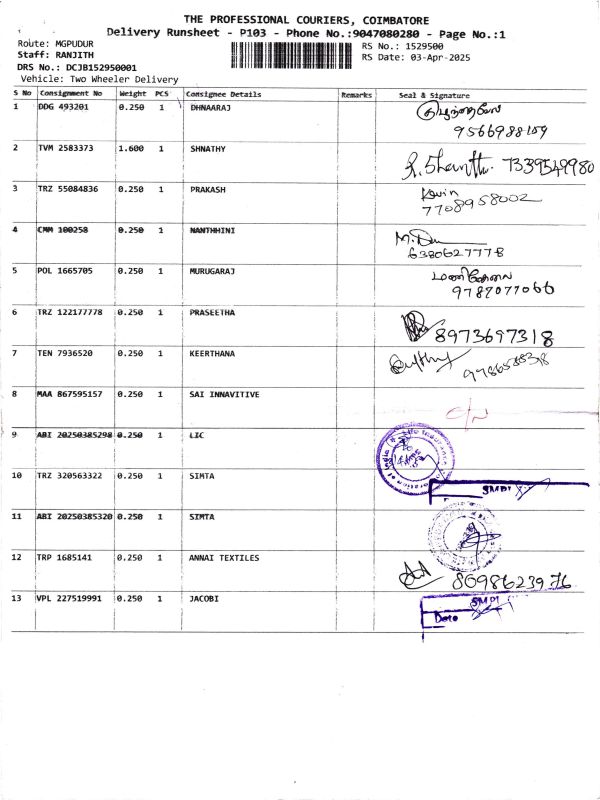 THE PROFESSIONAL COURIERS, COIMBATORE
Delivery Runsheet - P103 - Phone No.:9047080280 - Page No.:1
Route: MGPUDUR
RS No.: 1529500
Staff: RANJITH
RS Date: 03-Apr-2025
DRS No.: DCJB152950001
Vehicle: Two Wheeler Delivery
S No Consignment No Weight PCS Consignee Details Remarks Seal & Signature
1 DDG 493201 0.250 1 DHNAARAJ
9566988109
2 TVM 2583373 1.600 1 SHNATHY
7339549980
3 TRZ 55084836 0.250 1 PRAKASH Kevin
7708958002
4 CMM 100258 0.250 1 NANTHHINI
6380627778
5 POL 1665705 0.250 1 MURUGARAJ
9787077066
6 TRZ 122177778 0.250 1 PRASEETHA
8973697318
7 TEN 7936520 0.250 1 KEERTHANA
8 MAA 867595157 0.250 1 SAI INNAVITIVE
9 ABI 20250385298 0.250 1 LIC
10 TRZ 320563322 0.250 1 SIMTA
11 ABI 20250385320 0.250 1 SIMTA
12 TRP 1685141 0.250 1 ANNAI TEXTILES
8698623976
13 VPL 227519991 0.250 1 JACOBI
Date